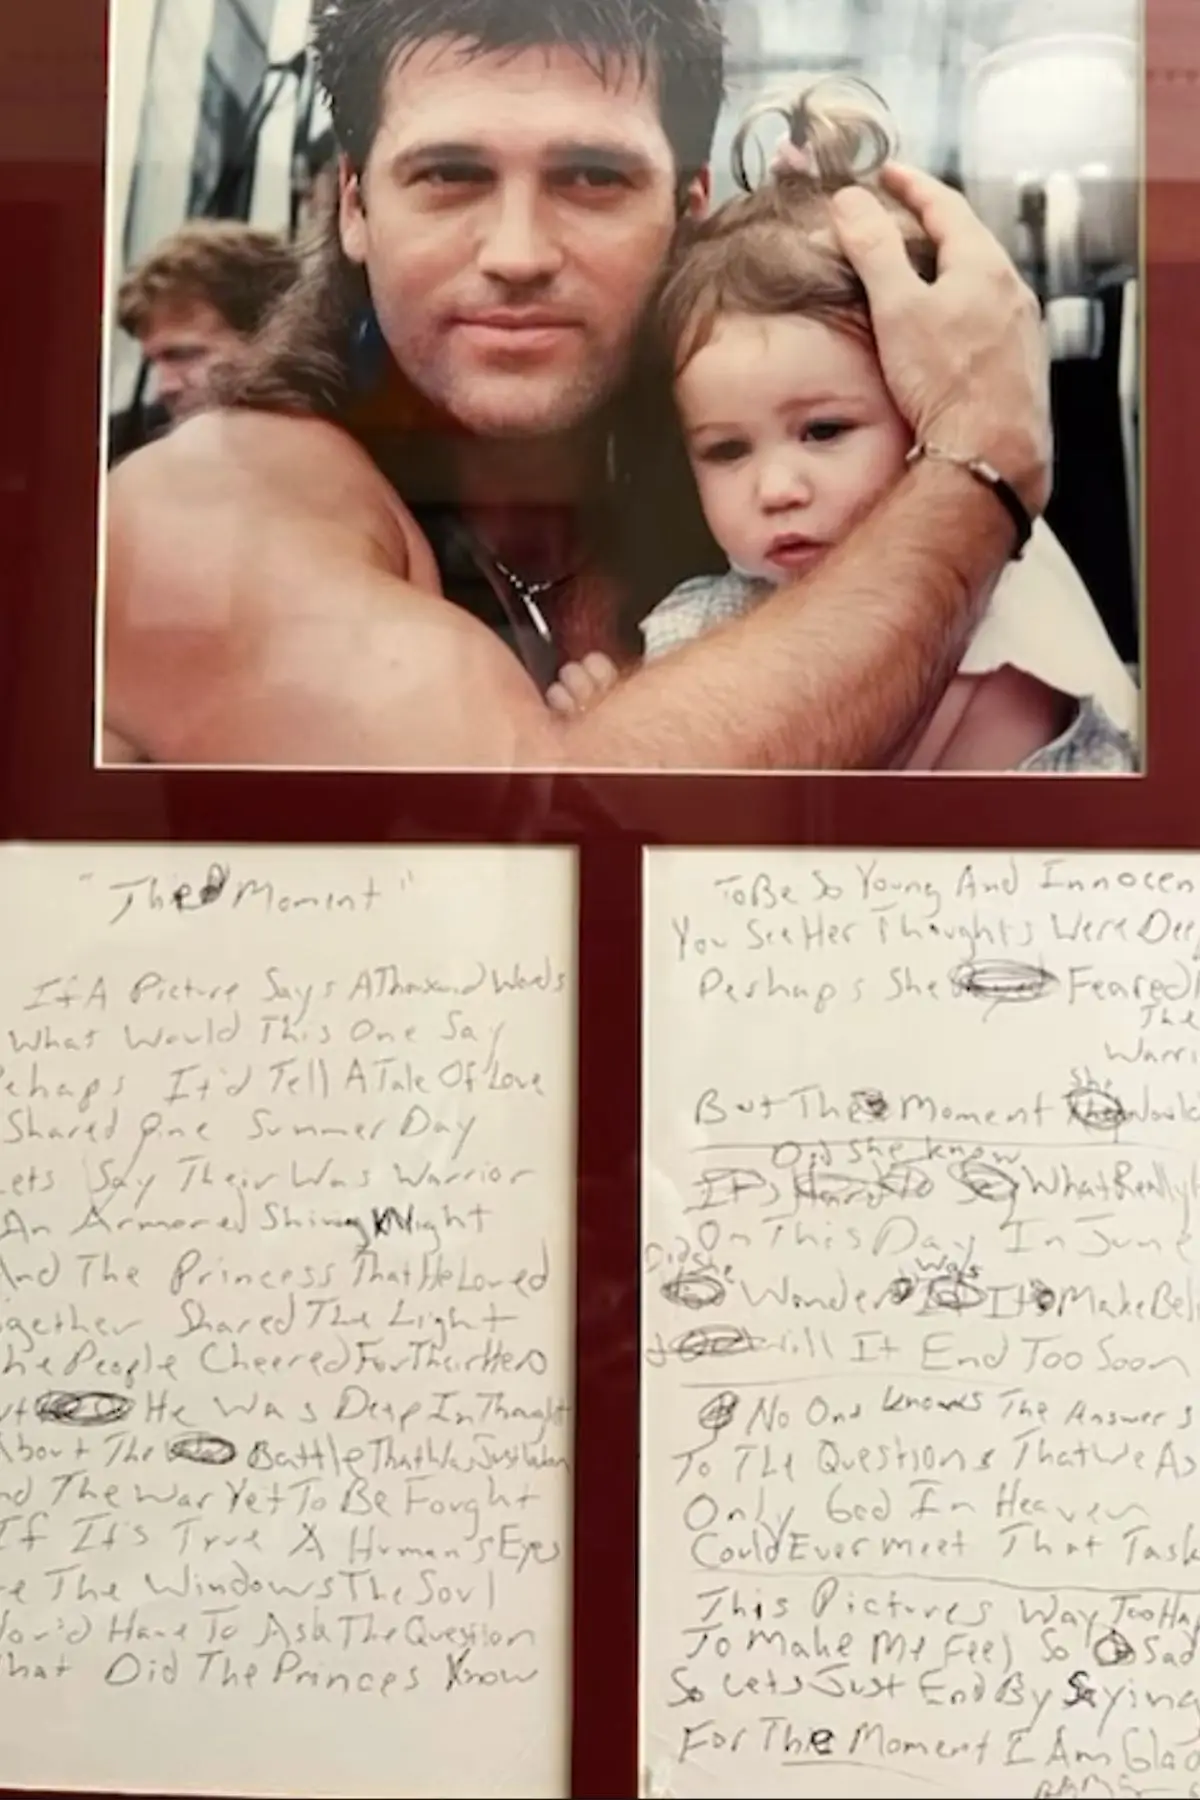 "The Moment"
If A Picture Says A Thousand Words
What Would This One Say
Pehaps It'd Tell A Tale Of Love
Shared One Summer Day
Lets Say Their Was Warrior
An Armored Shining Knight
And The Princess That He Loved
ogether Shared The Light
he People Cheered For Their Hero
ut He Was Deep In Thought
About The Battle That Was Just
nd The War Yet To Be Fought
If It's True A Human's Eyes
re The Windows The Soul
You'd Have To Ask The Question
What Did The Princes Know
To Be So Young And Innocen
You See Her Thoughts Were Dee
Perhaps She Feared
The
Warri
But The Moment She Would
Did She Know
What Really
On This Day In June
Did She Wonder Was It Make Bel
Will It End Too Soon
No One Knows The Answers
To The Questions That We As
Only God In Heaven
Could Ever Meet That Task
This Pictures Way Too Ha
To Make Me Feel So Sad
So Lets Just End By Saying
For The Moment I Am Glad